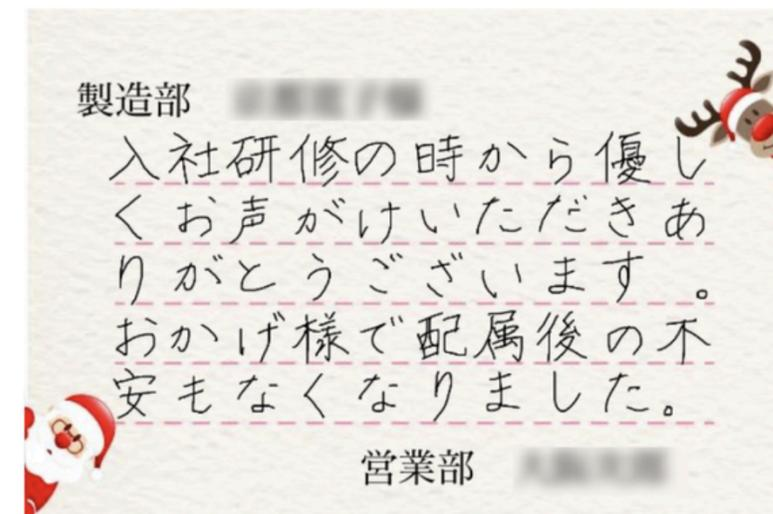 製造部
入社研修の時から優し
くお声がけいただきあ
りがとうございます。
おかげ様で配属後の不
安もなくなりました。
営業部